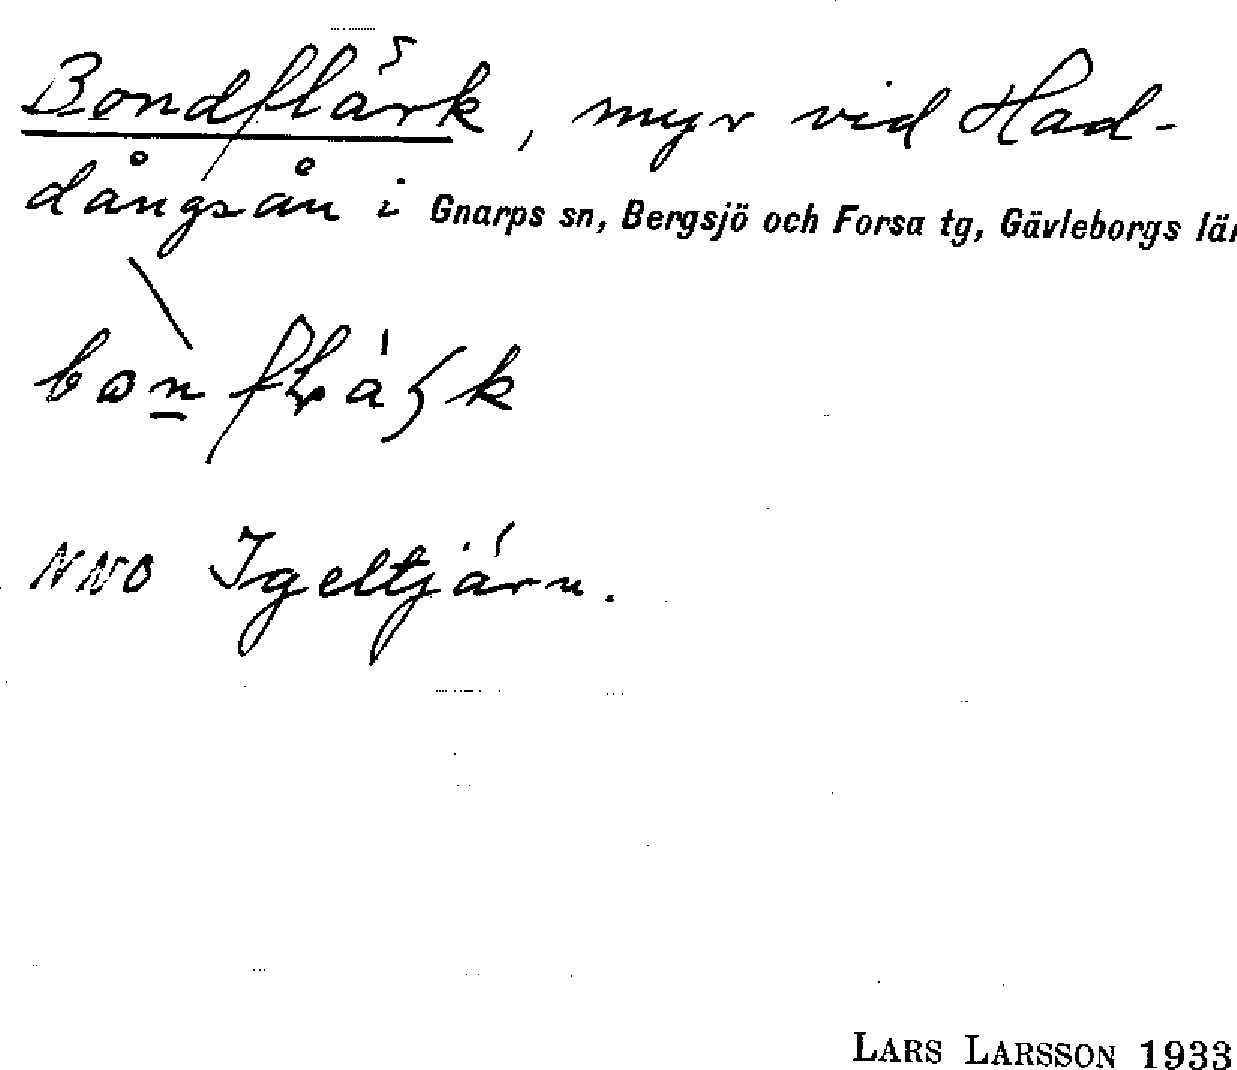 Bondflärk, myr vid Had-
dångsån i Gnarps sn, Bergsjö och Forsa tg, Gävleborgs län
NNO Igeltjärn.
LARS LARSSON 1933